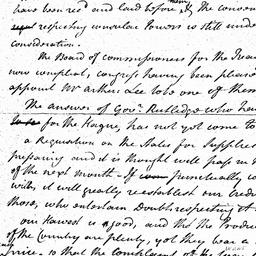 have been red and laid before, & the consen
respecting consular Powers is still unde
consideration.
The Board of commissioners for the Trea
now compleat, congress having been pleas
appoint Mr Arthur Lee to be one of them
The answer of Govr. Rutledge who ha
for the Hague, has not yet come to
a Requisition on the States for Supplies
preparing and it is thought will pass in
of the next month. If punctually co
with, it will greatly reestablish our cred
those, who entertain Doubts respecting it
our Harvest is good, and tho the Produc
of the Country are plenty, yet they bear a
Price, so that the complaints of the